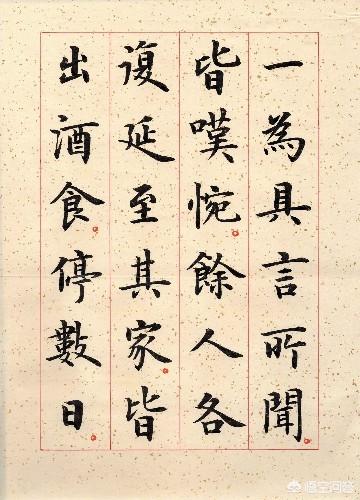 一為具言所聞
皆嘆惋餘人各
復延至其家皆
出酒食停數日
悟空问答